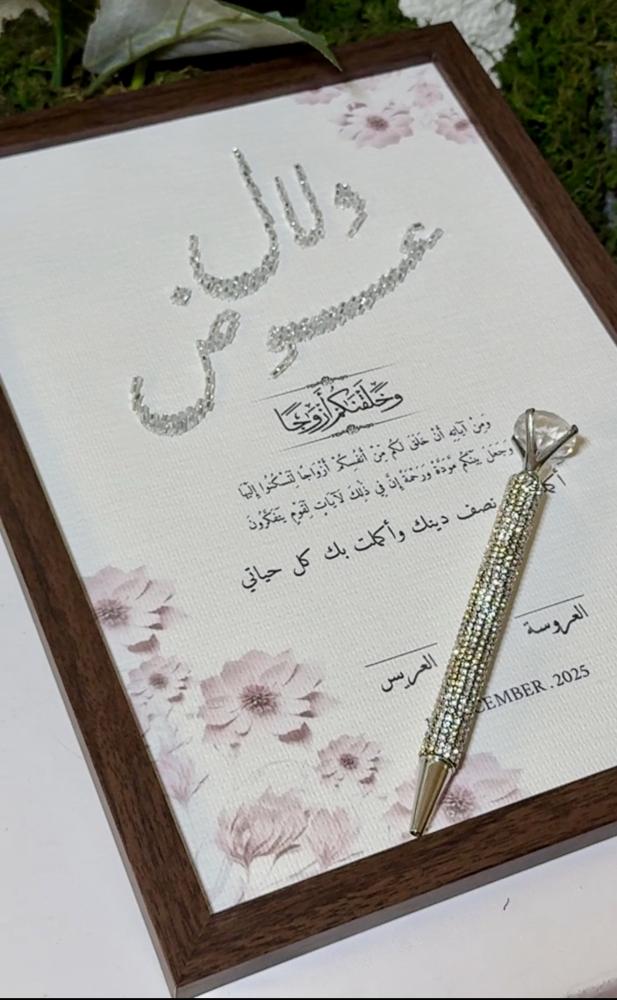 دلال
عوض
وخلقنكم أزوجا
ومن آياته أن خلق لكم من أنفسكم أزواجا لتسكنوا إليها
وجعل بينكم مودة ورحمة إن في ذلك لآيات لقوم يتفكرون
نصف دينك وأكملت بك كل حياتي
العروسة
العريس
CEMBER . 2025